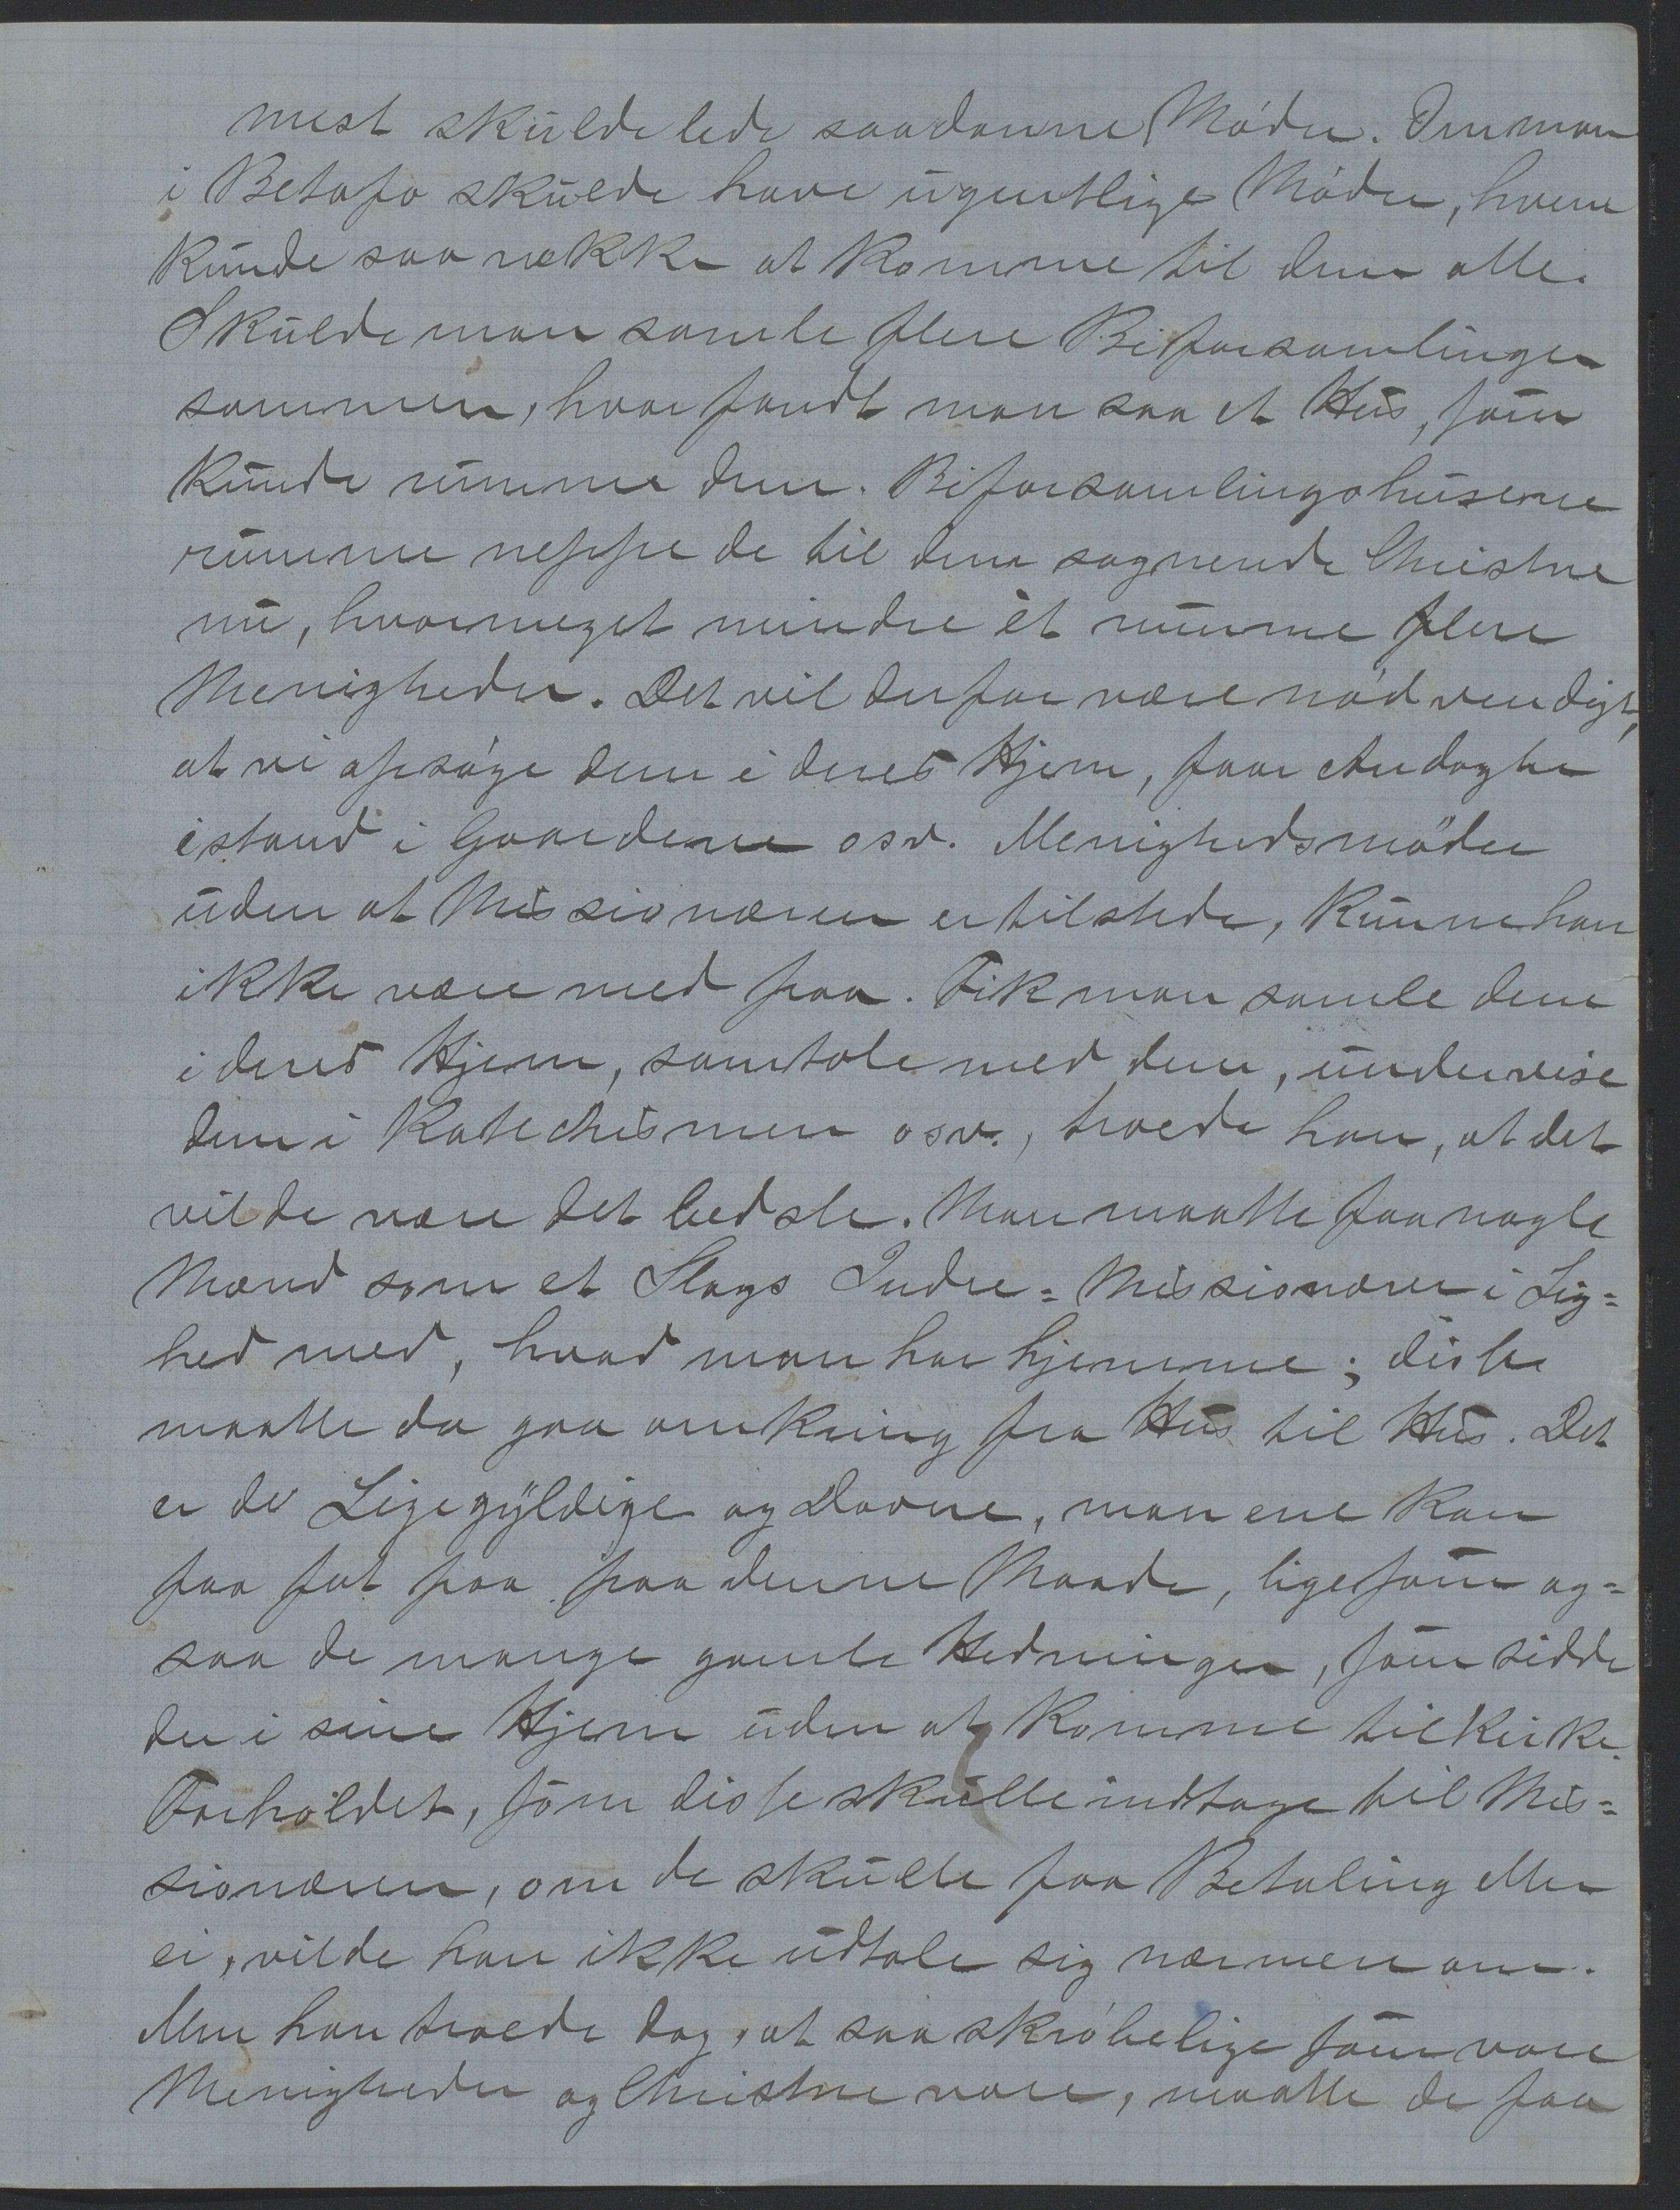 mest skulde lede saadanne Møder. Om man
i Betafo skulde have ugentlige Møder, hvem
kunde saa række at komme til dem alle.
Skulde man samle flere Biforsamlinger
sammen, hvor fandt man saa et Hus, som
kunde rumme dem. Biforsamlingshusene
rumme neppe de til dem sognende Christne
nu, hvormeget mindre ét rumme flere
Menigheder. Det vil derfor være nødvendigt,
at vi opsøge dem i deres Hjem, faar Andagter
istand i Gaardene osv. Menighedsmøder
uden at Missionæren er tilstede, kunne han
ikke være med paa. Fik man samle dem
i deres Hjem, samtale med dem, undervise
dem i Katechismen osv., troede han, at det
vilde være det bedste. Man maatte faa nogle
Mænd som et Slags Indre=Missionærer i Lig=
hed med, hvad man har hjemme; disse
maatte da gaa omkring fra Hus til Hus. Det
er de Ligegyldige og Dovne, man ene kan
faa fat paa paa denne Maade, ligesom og=
saa de mange gamle Hedninger, som sidde
der i sine Hjem uden at komme til Kirke.
Forholdet, som disse skulle indtage til Mis=
sionæren, om de skulle faa Betaling eller
ei, vilde han ikke udtale sig nærmere om.
Men han troede dog, at saa skrøbelige som vore
Menigheder og Christne vare, maatte de faa